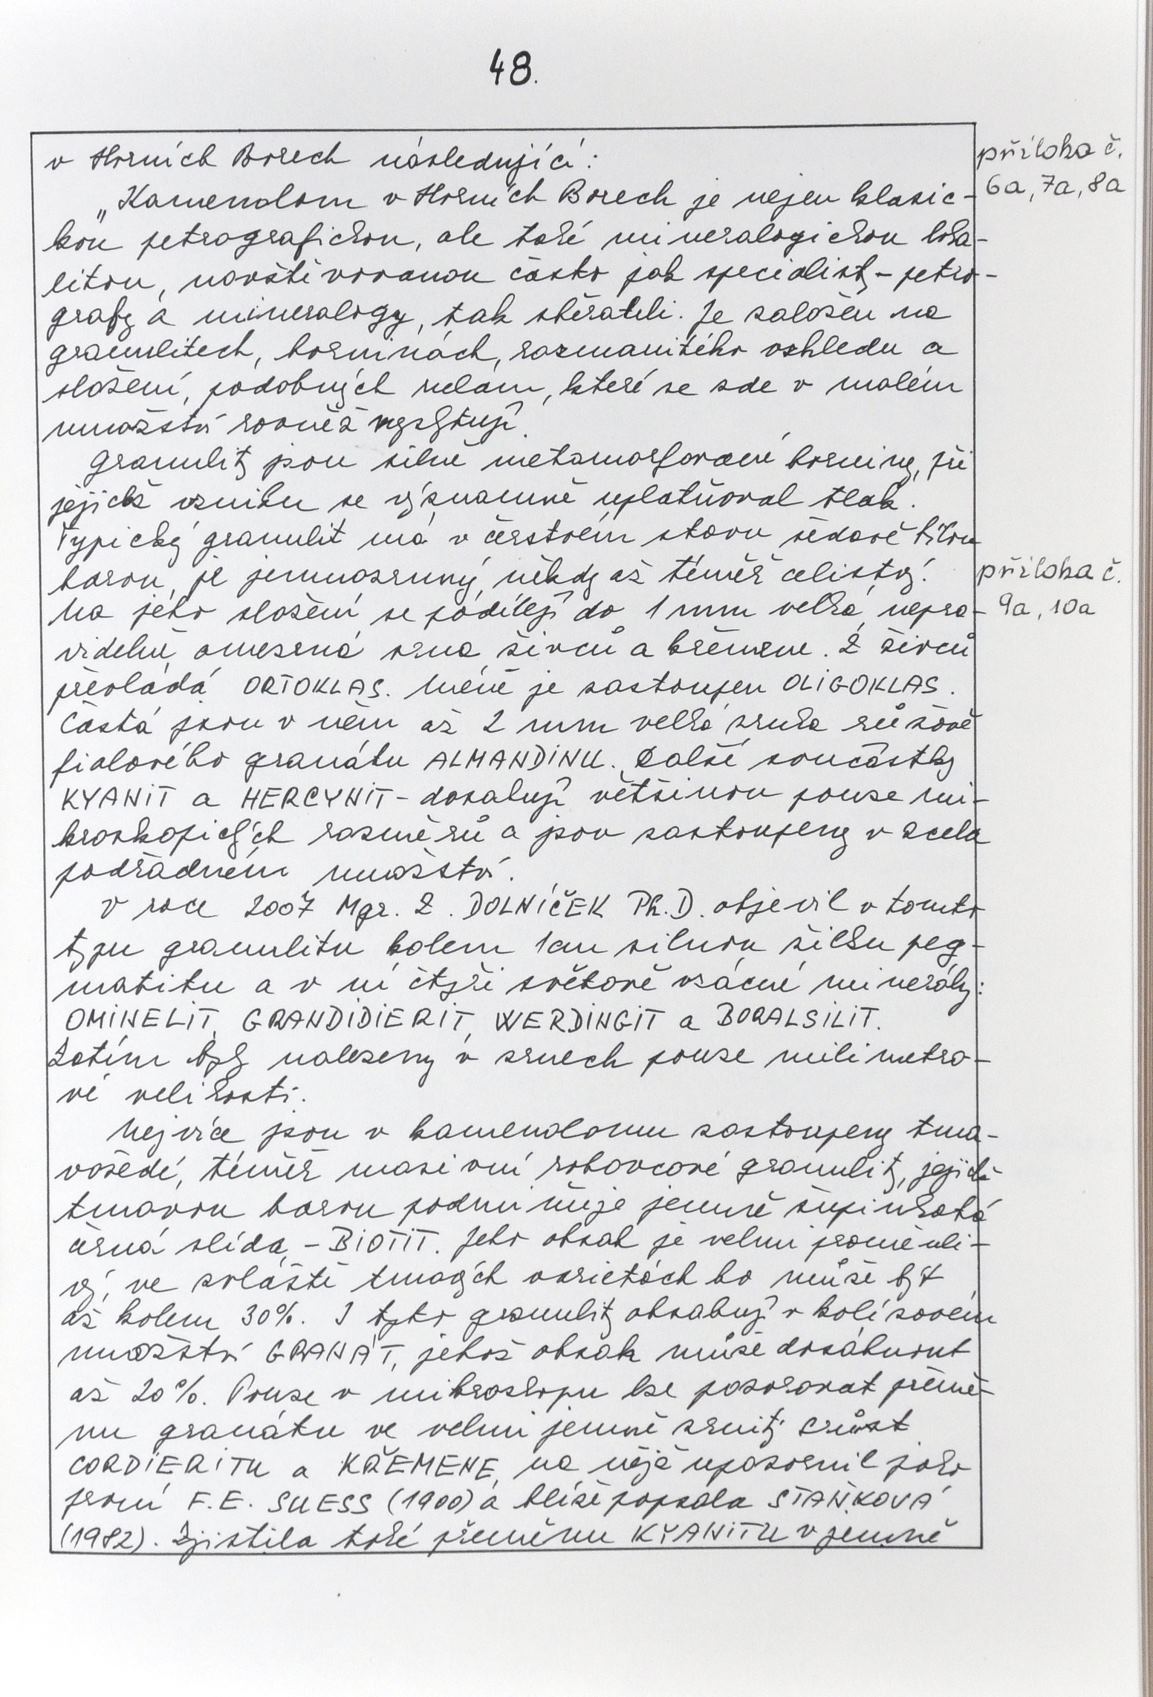 48.
v Horních Borech následující:
příloha č.
6a, 7a, 8a
„Kamenolom v Horních Borech je nejen klasic-
kou petrografickou, ale také mineralogickou loka-
litou, navštěvovanou často jak specialisty - petro-
grafy a mineralogy, tak sběrateli. Je založen na
granulitech, horninách, rozmanitého vzhledu a
složení, podobných rulám, které se zde v malém
množství rovněž vyskytují.
Granulity jsou silně metamorfované horniny, při
jejichž vzniku se významně uplatňoval tlak.
Typický granulit má v čerstvém stavu šedavě bílou
barvu, je jemnozrnný, někdy až téměř celistvý.
příloha č.
9a, 10a
Na jeho složení se podílejí do 1 mm velká, nepra-
videlně omezená zrna živců a křemene. Z živců
převládá ORTOKLAS. Méně je zastoupen OLIGOKLAS.
Častá jsou v něm až 2 mm velká zrnka růžově
fialového granátu ALMANDINU. Další součástky
KYANIT a HERCYNIT - dosahují většinou pouze mi-
kroskopických rozměrů a jsou zastoupeny v zcela
podřadném množství.
V roce 2007 Mgr. Z. DOLNÍČEK Ph.D. objevil v tomto
typu granulitu kolem 1cm silnou žilku peg-
matitu a v ní čtyři světově vzácné minerály:
OMINELIT, GRANDIDIERIT, WERDINGIT a BORALSILIT.
Zatím byly nalezeny v zrnech pouze milimetro-
vé velikosti.
Nejvíce jsou v kamenolomu zastoupeny tma-
vošedé, téměř masivní rohovcové granulity, jejichž
tmavou barvu podmiňuje jemně šupinkatá
černá slída - BIOTIT. Jeho obsah je velmi proměnli-
vý, ve zvláště tmavých varietách ho může být
až kolem 30%. I tyto granulity obsahují v kolísavém
množství GRANÁT, jehož obsah může dosáhnout
až 20%. Pouze v mikroskopu lze pozorovat přemě-
nu granátu ve velmi jemně zrnitý srůst
CORDIERITU a KŘEMENE, na nějž upozornil jako
první F.E. SUESS (1900) a blíže popsala STAŇKOVÁ
(1982). Zjistila také přeměnu KYANITU v jemně